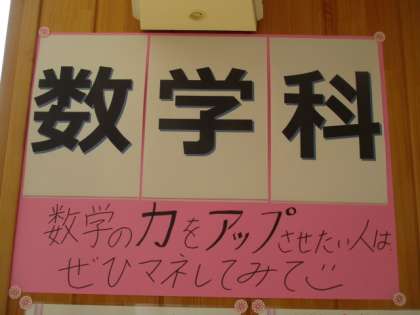 数学科
数学の力をアップさせたい人は
ぜひマネしてみて